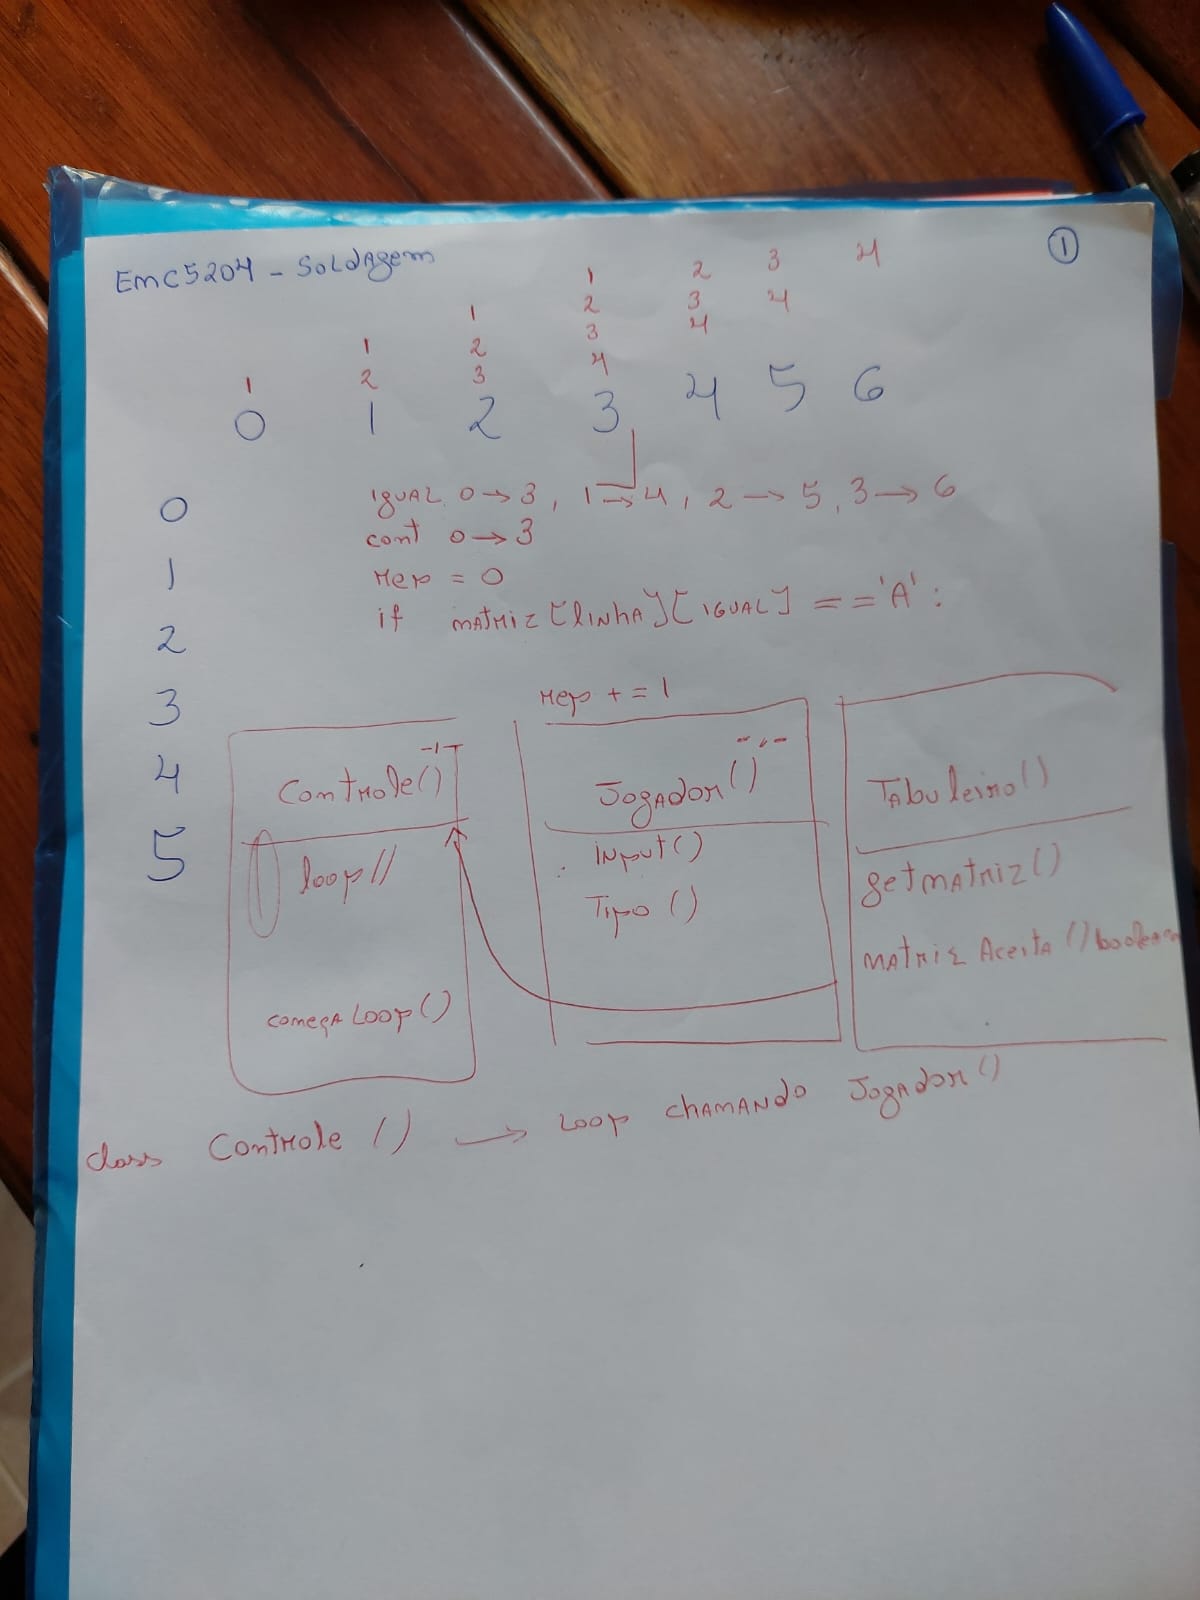 EMC5204 - Soldagem
1
1 2 3 4
1 2 3 4
1 2 3 4
1 2 3 4
0 1 2 3 4 5 6
0
1
2
3
4
5
igual 0 → 3, 1 → 4, 2 → 5, 3 → 6
cont 0 → 3
rep = 0
if matriz [linha][igual] == 'A':
rep += 1
Controle()
loop()
começa Loop()
Jogador()
input()
Tipo ()
Tabuleiro()
getmatriz()
matriz Aceita () boolean
class Controle () → Loop chamando Jogador()